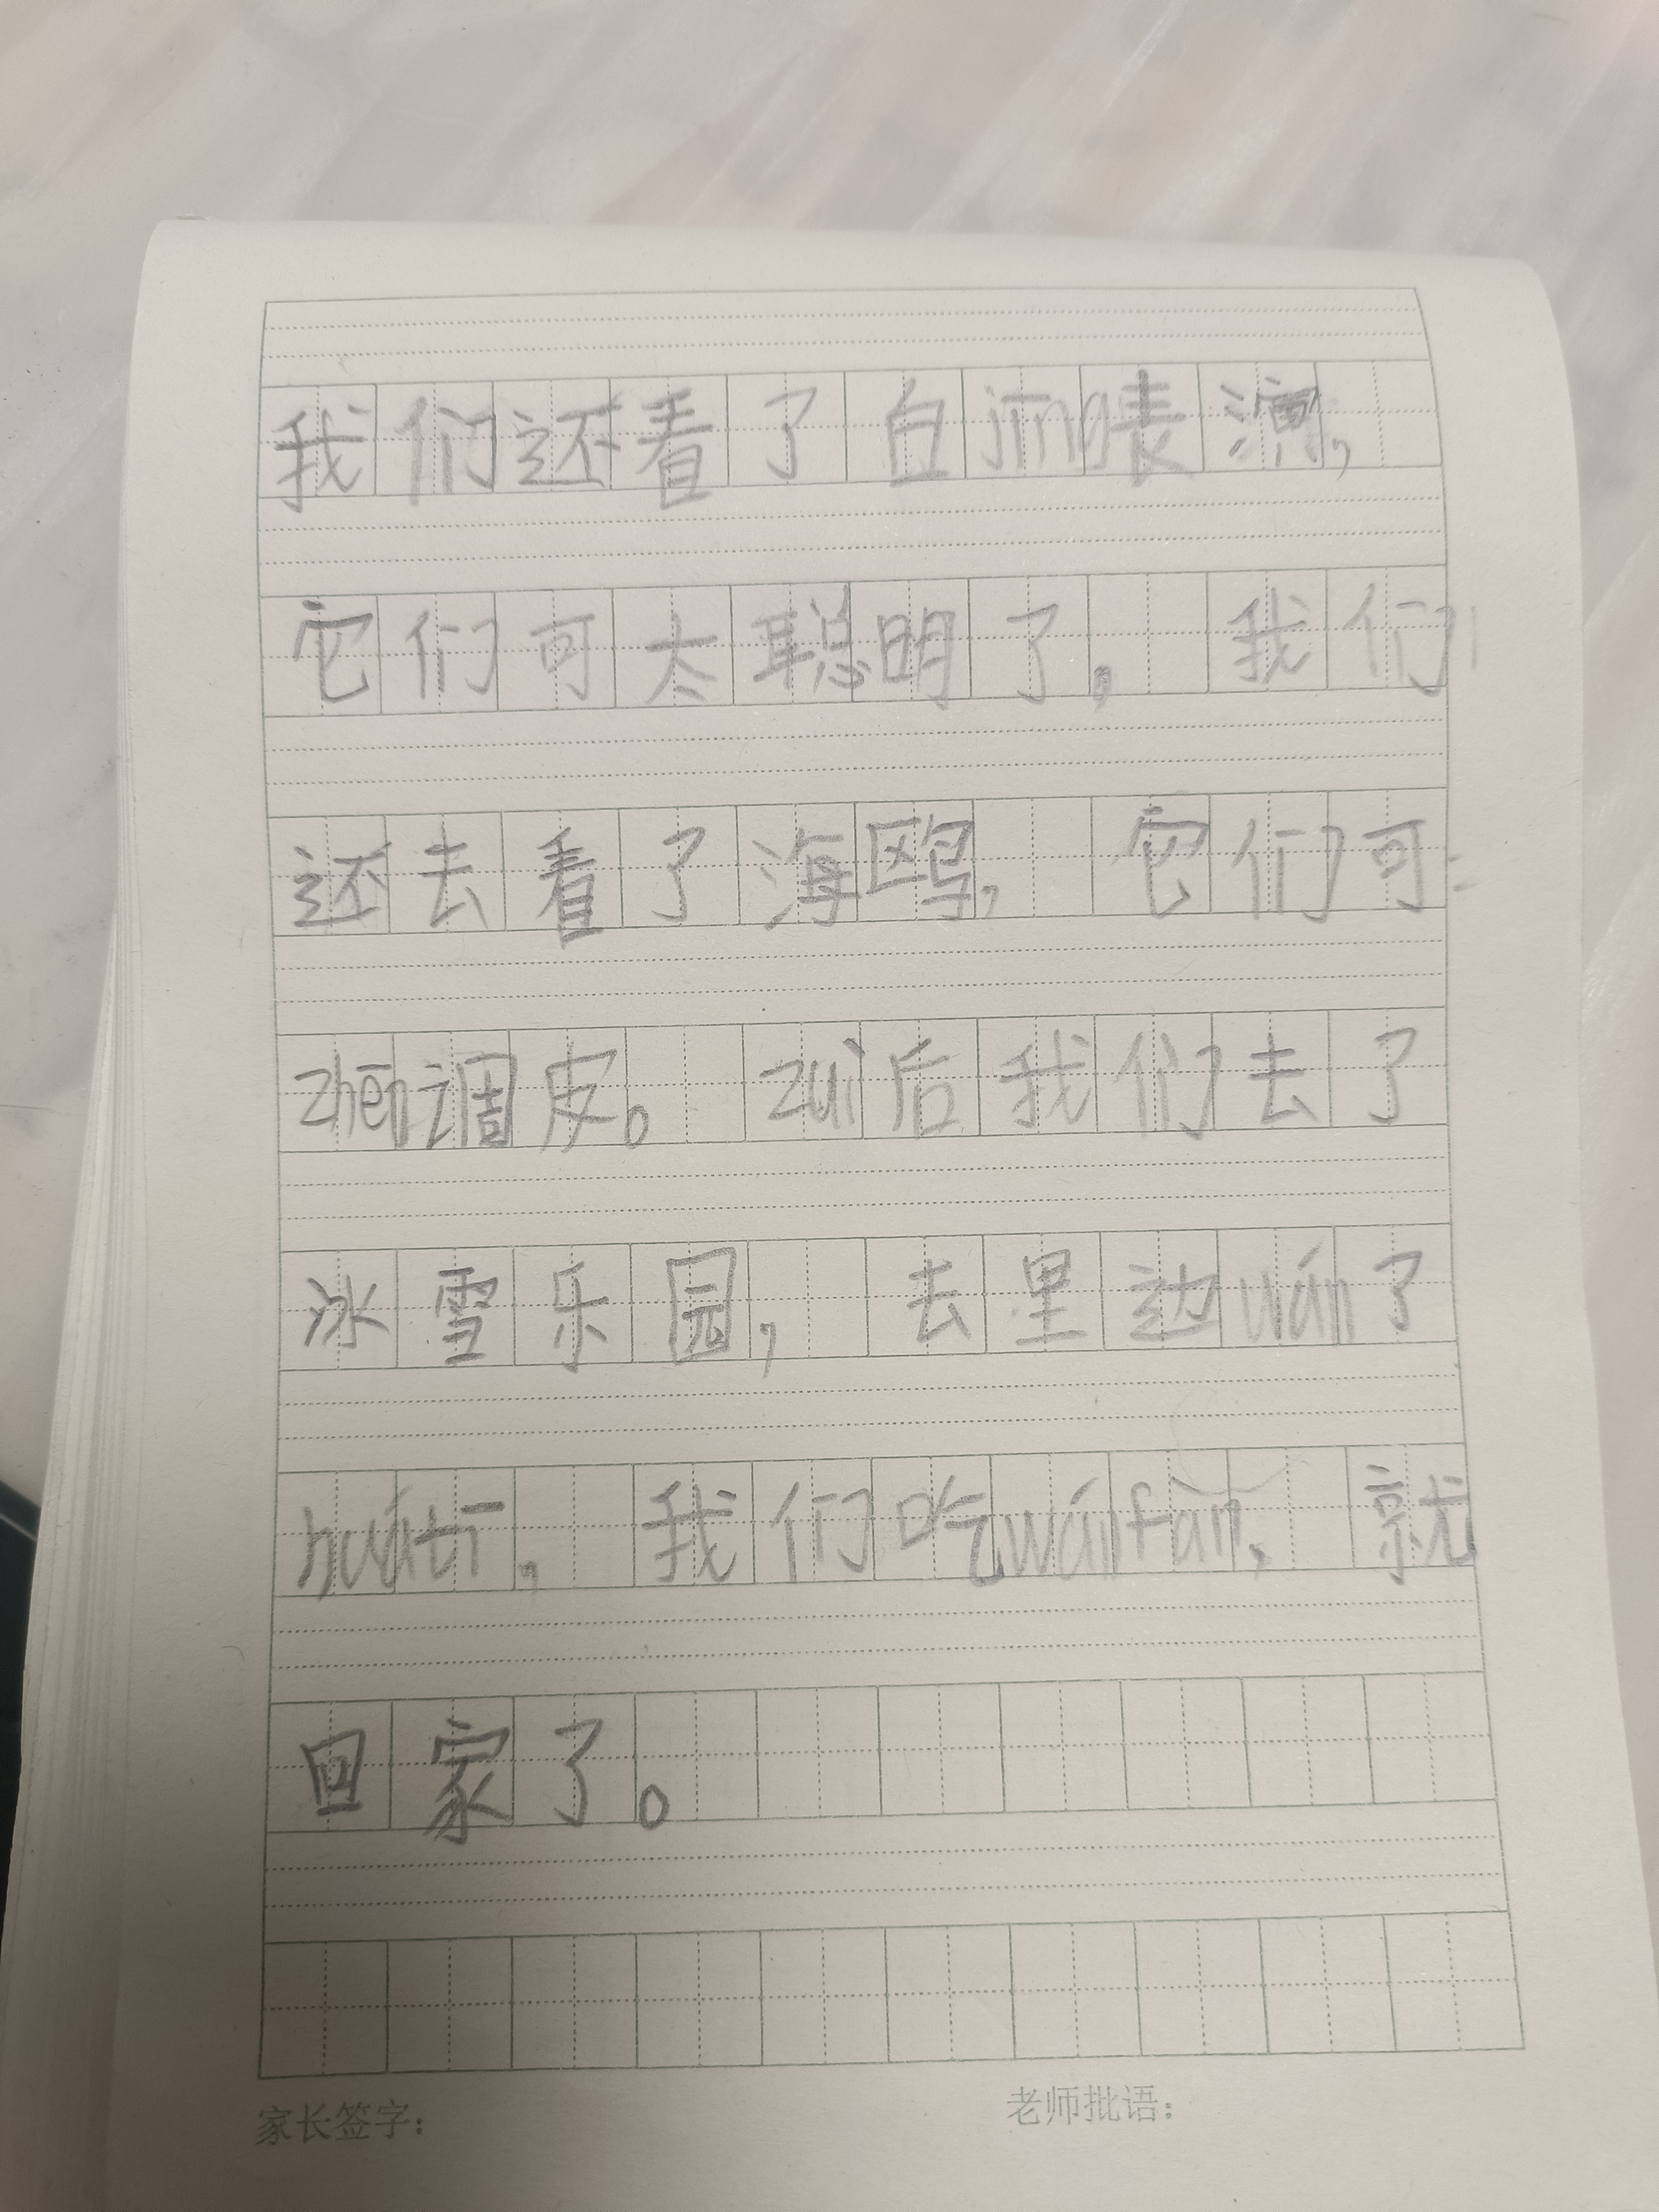 我们还看了白jīng表演，
它们可太聪明了，我们
还去看了海鸥，它们可
zhēn调皮。zuì后我们去了
冰雪乐园，去里边wán了
huátī，我们吃wánfàn，就
回家了。
家长签字： 老师批语：